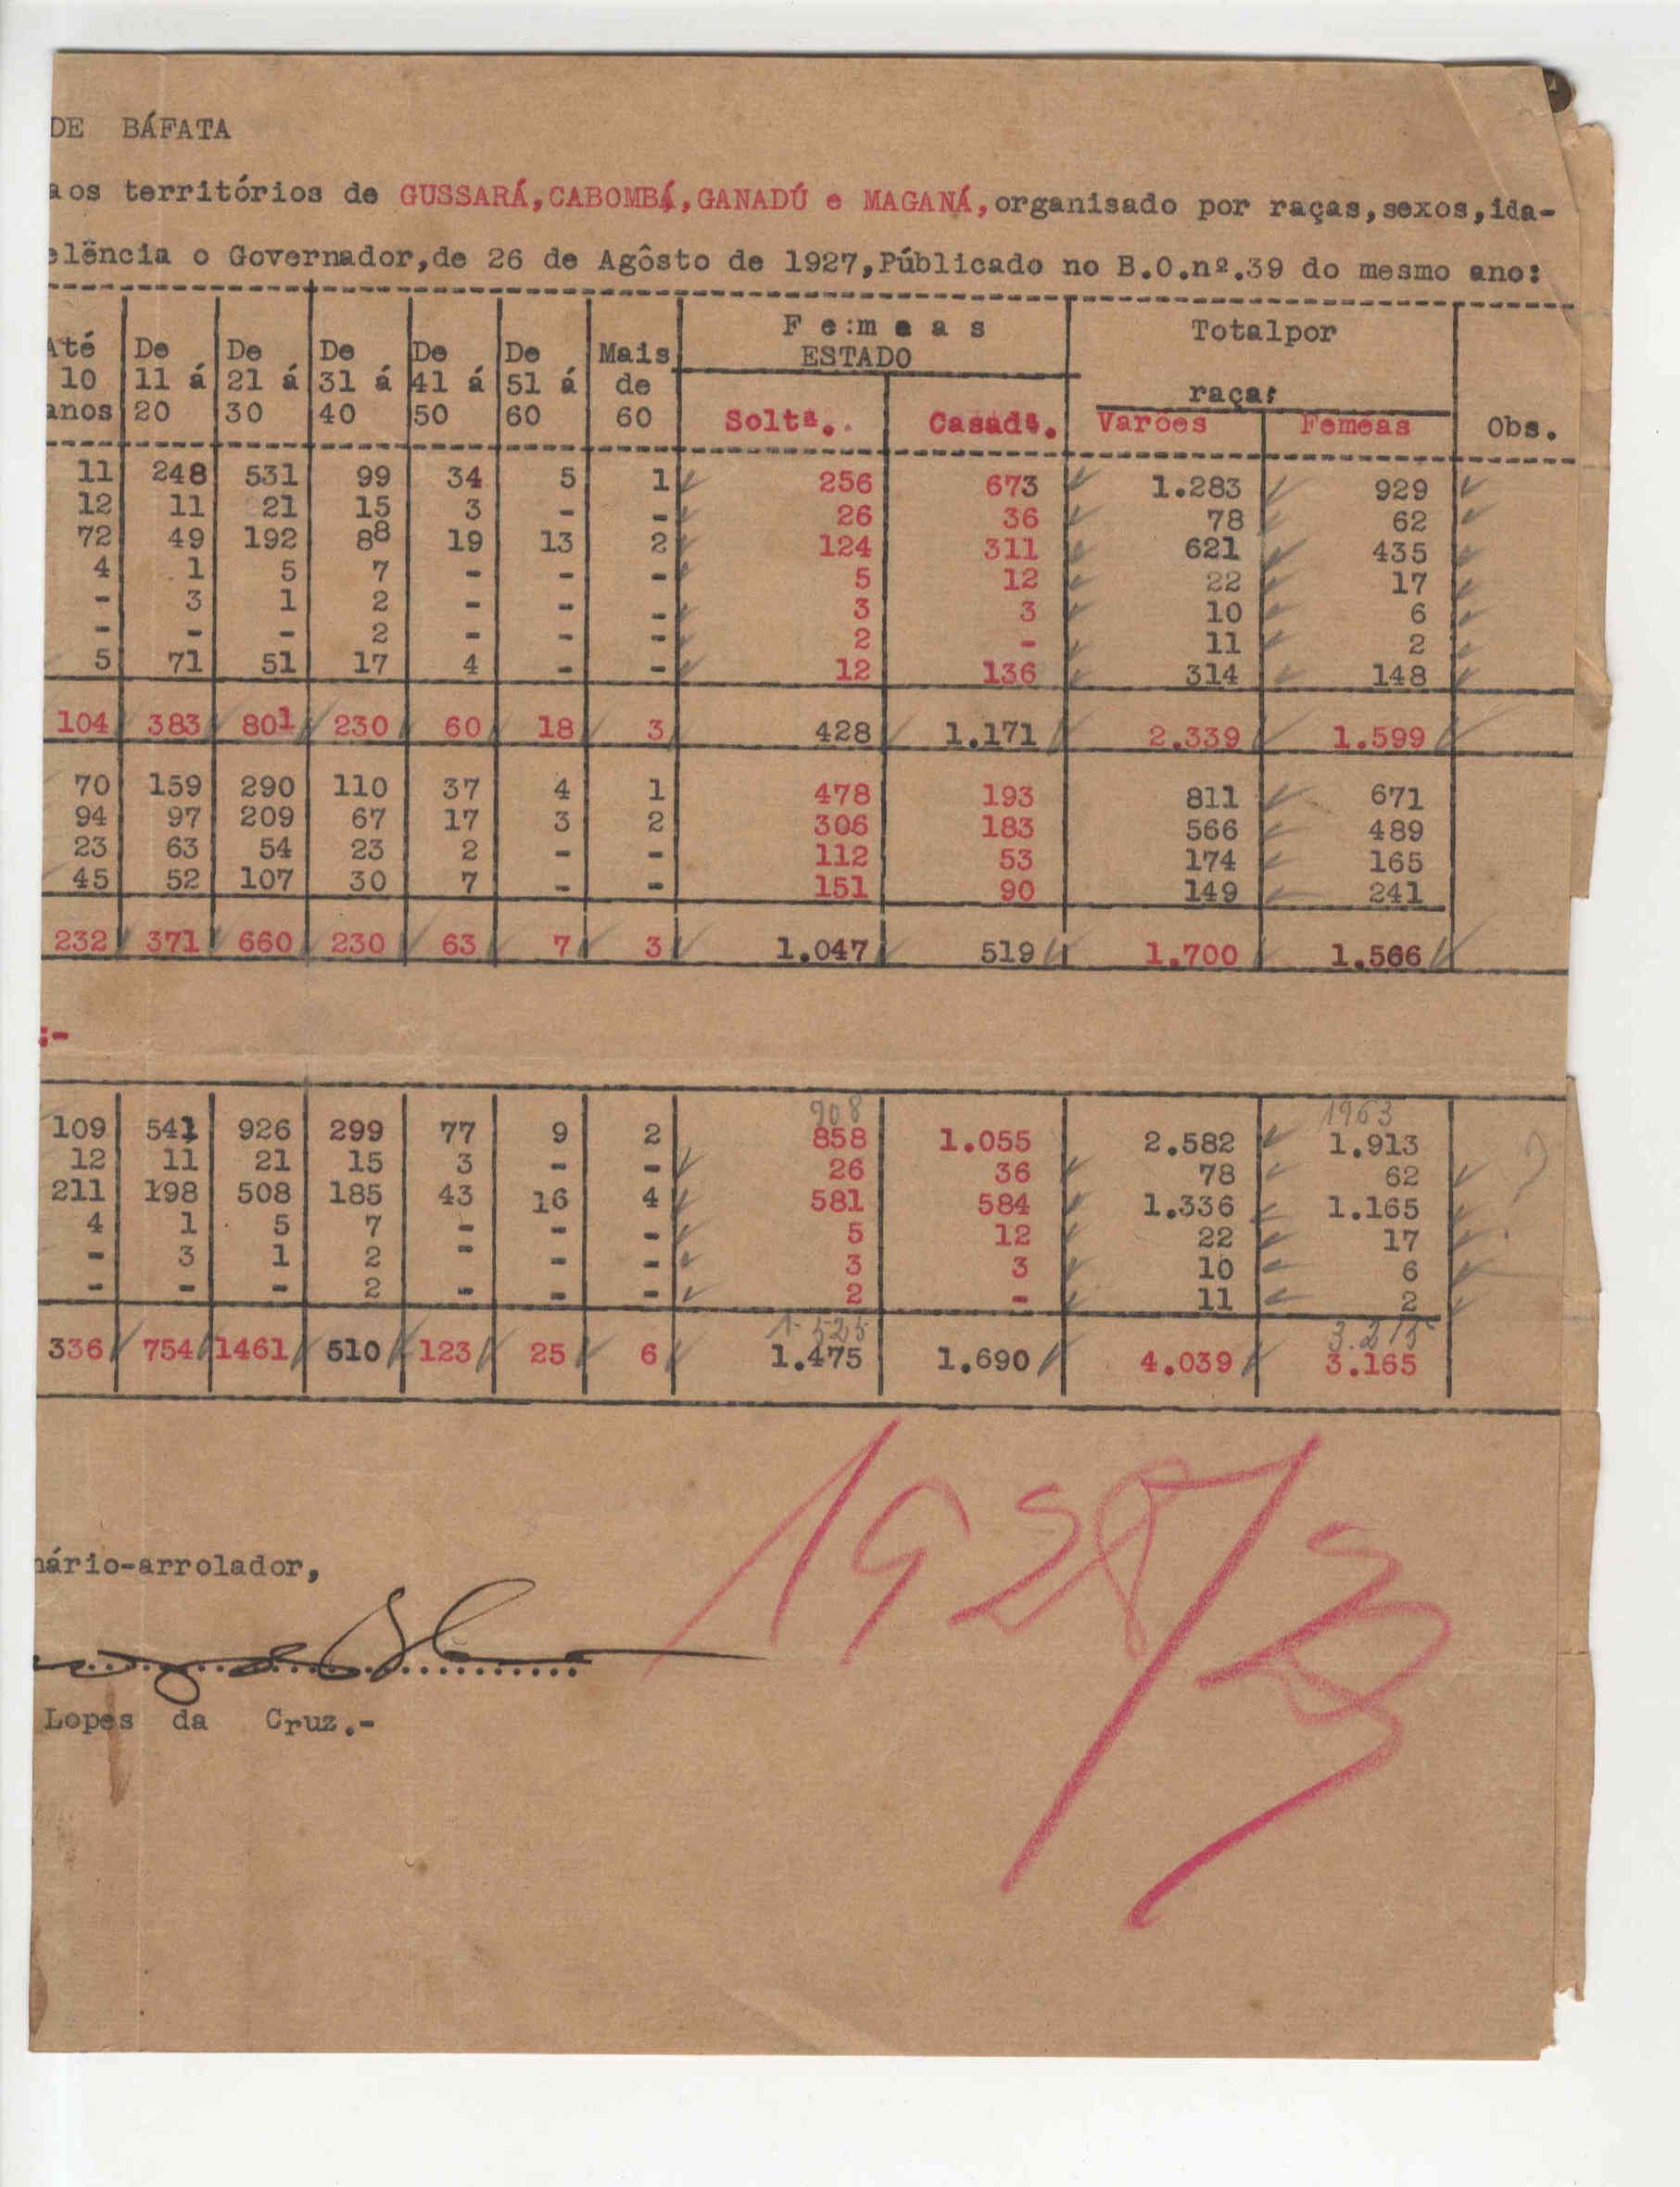 DE BÁFATA
aos territórios de GUSSARÁ,CABOMBÁ,GANADÚ e MAGANÁ,organisado por raças,sexos,ida-
elência o Governador,de 26 de Agôsto de 1927,Públicado no B.O.nº.39 do mesmo ano:
Até 10 anos De 11 á 20 De 21 á 30 De 31 á 40 De 41 á 50 De 51 á 60 Mais de 60 Fe:meas ESTADO Totalpor raça:
Soltª.. Casadª. Varões Femeas Obs.
11 248 531 99 34 5 1 256 673 1.283 929
12 11 21 15 3 - - 26 36 78 62
72 49 192 88 19 13 2 124 311 621 435
4 1 5 7 - - - 5 12 22 17
- 3 1 2 - - - 3 3 10 6
- - - 2 - - - 2 - 11 2
5 71 51 17 4 - - 12 136 314 148
104 383 801 230 60 18 3 428 1.171 2.339 1.599
70 159 290 110 37 4 1 478 193 811 671
94 97 209 67 17 3 2 306 183 566 489
23 63 54 23 2 - - 112 53 174 165
45 52 107 30 7 - - 151 90 149 241
232 371 660 230 63 7 3 1.047 519 1.700 1.566
:-
908 1963
109 541 926 299 77 9 2 858 1.055 2.582 1.913
12 11 21 15 3 - - 26 36 78 62
211 198 508 185 43 16 4 581 584 1.336 1.165
4 1 5 7 - - - 5 12 22 17
- 3 1 2 - - - 3 3 10 6
- - - 2 - - - 2 - 11 2
1.525 3.215
336 754 1461 510 123 25 6 1.475 1.690 4.039 3.165
1928/
nário-arrolador,
Lopes da Cruz.-